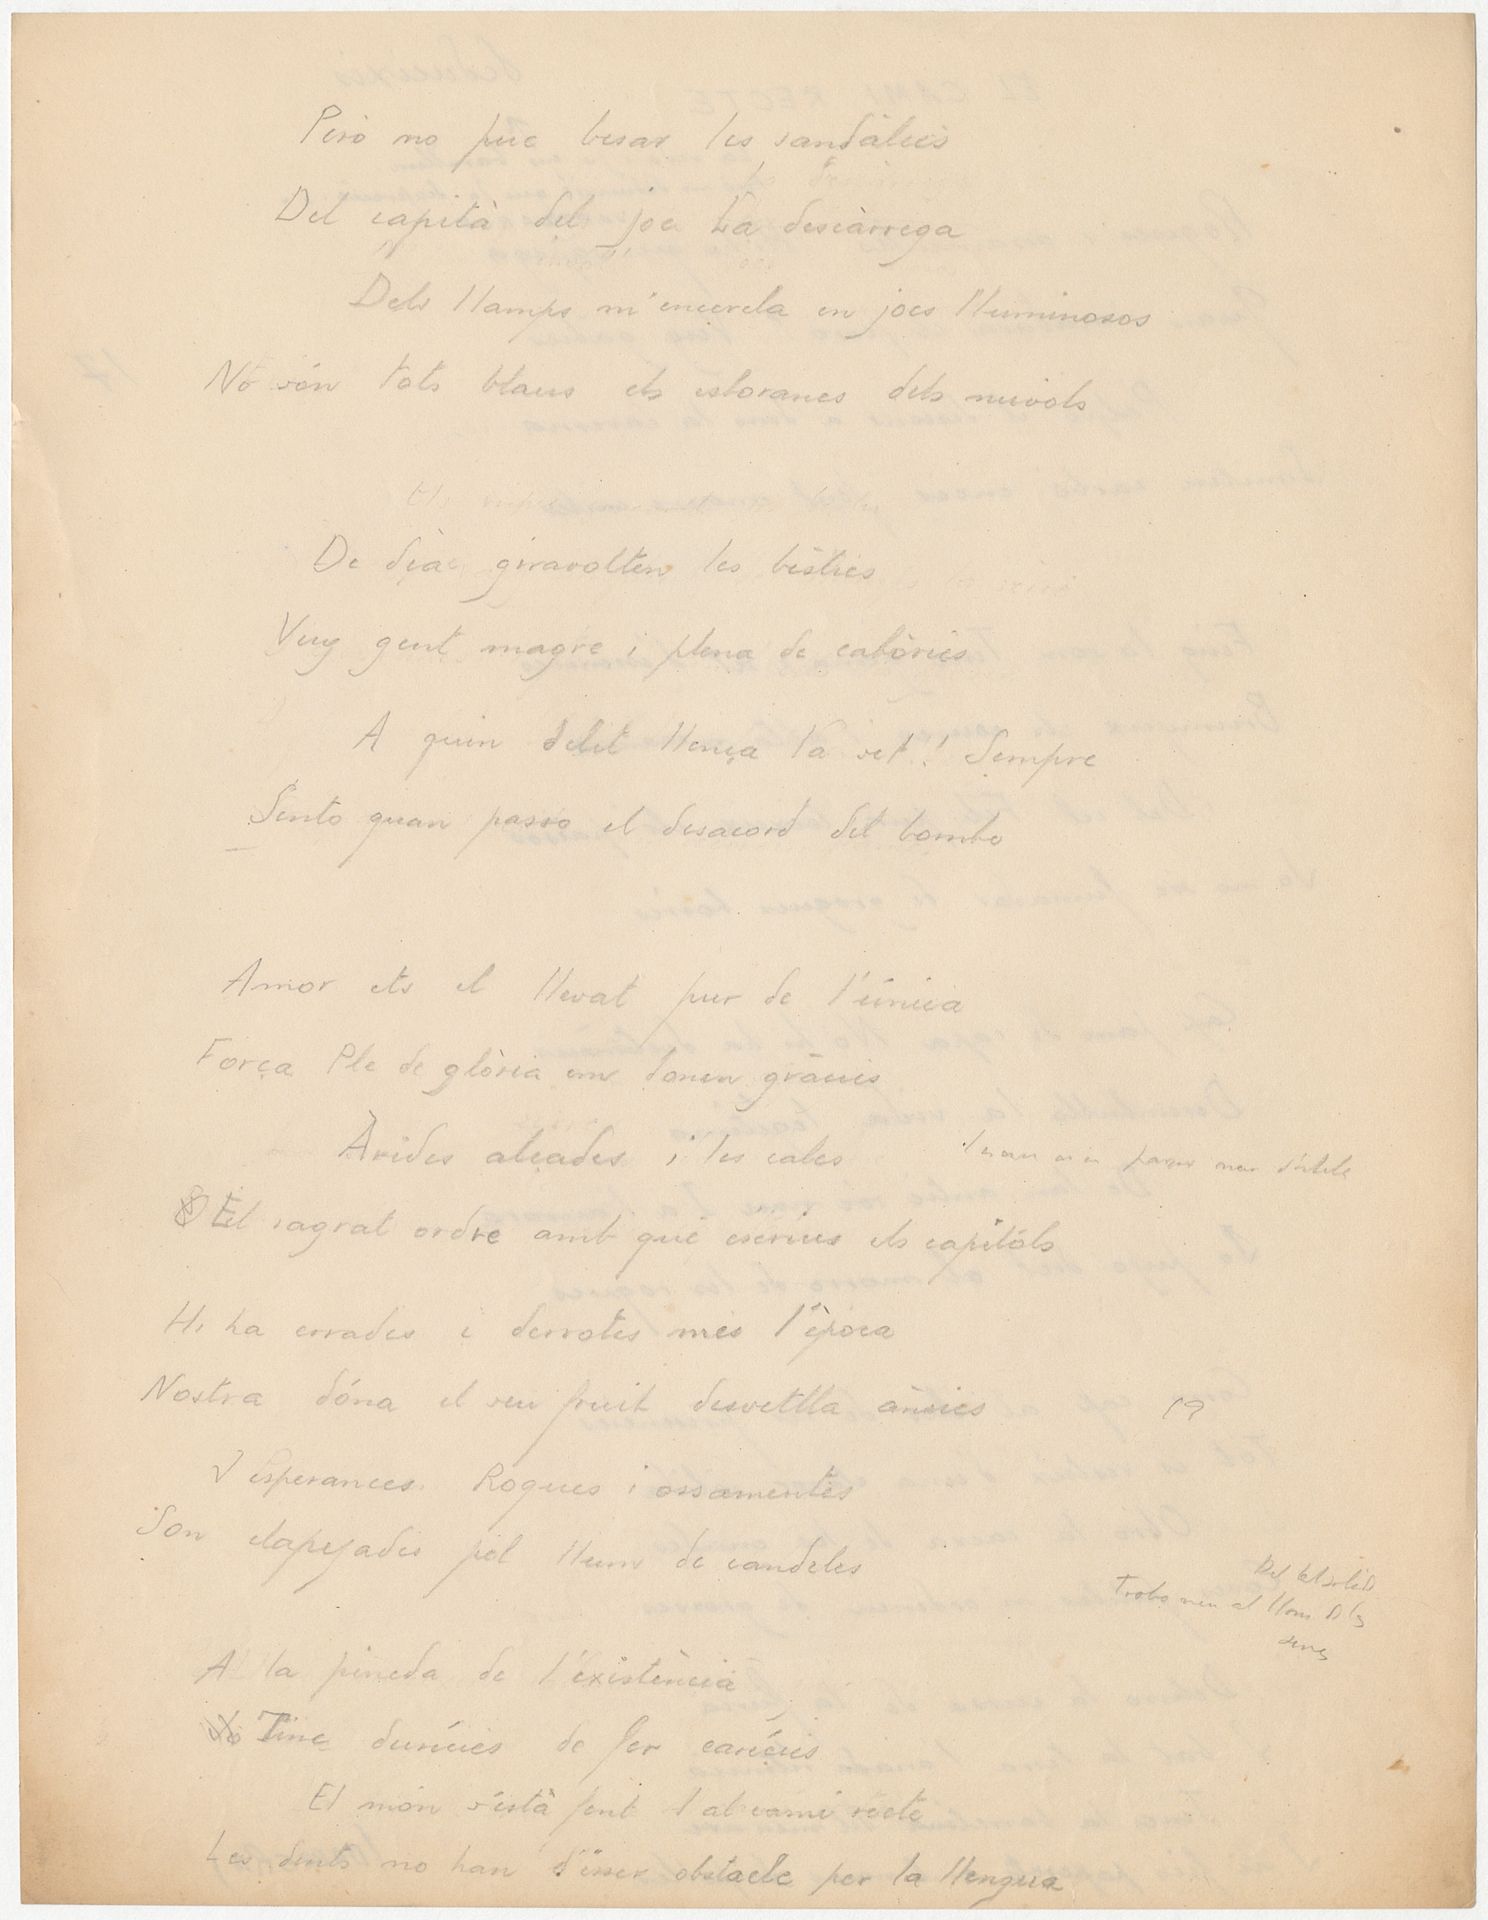 Però no puc besar les sandàlies
Del capità del joc La descàrrega
Dels llamps m'encercla en jocs lluminosos
No són tots blaus els estoranes dels núvols
De dia giravolten les bèsties
Vuy gent magre i plena de calòries
A quin delit llença la set! Sempre
Sento quan passo el desacord del bombo
Amor ets el llevat pur de l'única
Força Ple de glòria em donen gràcies
Àrides alçades i les cales
El sagrat ordre amb què escrius els capítols
Hi ha errades i derrotes més l'època
Nostra dóna el seu fruit desvetlla ànsies
I esperances. Roques i ossamentes
Son clapejades pel llum de candeles
A la pineda de l'existència
Tinc denúncies de fer carícies
El món s'està fent tal camí recte
Les dents no han d'ésser obstacle per la llengua